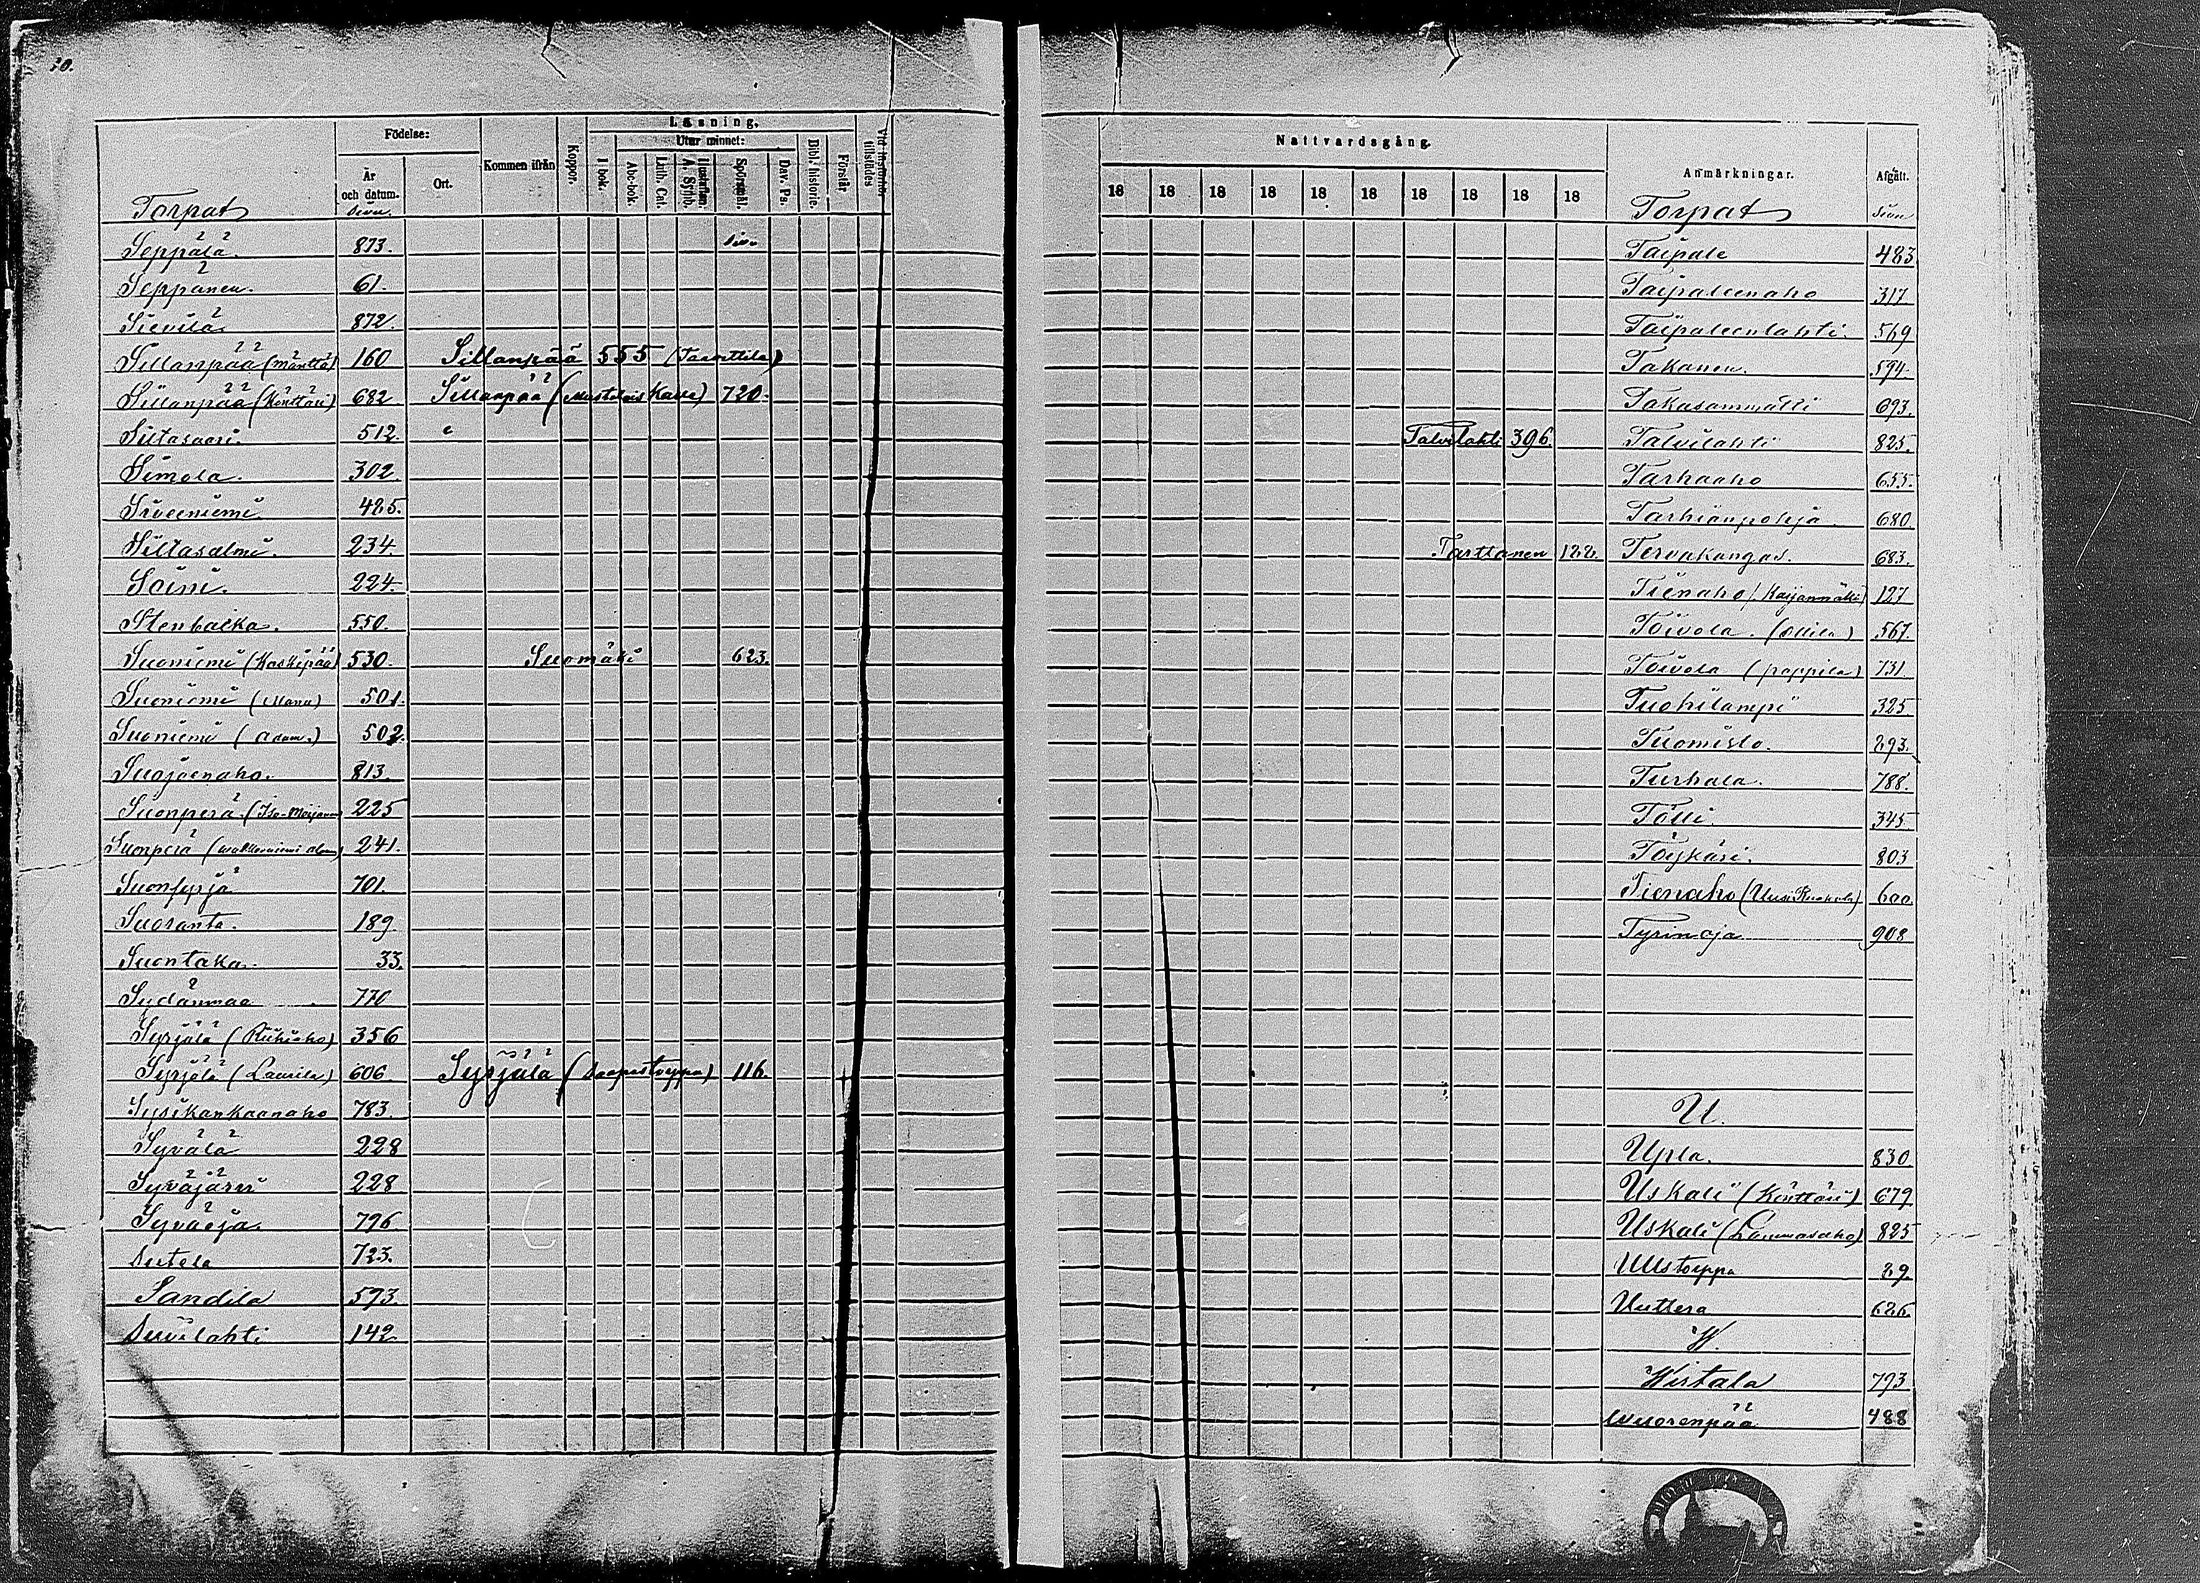 10.
Födelse:
Läsning.
Utur minnet:
År och datum.
Ort.
Kommen ifrån
Koppor.
I bok.
Abc-bok.
Luth. Cat.
A. Symb.
Spörsmål.
Dav. Ps.
Bibl. historie
Förstår
Torpat sivu.
Seppälä. 873. siv.
Seppänen. 61.
Sievilä 872.
Sillanpää (Mänttä) 160 Sillanpää 555
Sillanpää (Könttäri) 682 Sillanpää (Mustalais Kalle) 720.
Siltasaari. 512.
Simola. 302.
Sirveeniemi. 485.
Siltasalmi. 234.
Soini. 224.
Stenbacka. 550.
Suoniemi (Koskipää) 530. Suomäki 623.
Suoniemi (Manu) 501.
Suoniemi (Adam.) 502.
Suojoenaho. 813.
Suonperä. 225
Suonperä 241.
Suonsyrjä 701.
Suoranta. 189.
Suontaka. 33.
Sydänmaa 770
Syrjälä (Riihiaho) 356
Syrjälä (Laurila) 606. Syrjälä (Saapastorppa) 116.
Sysikankaanaho 783.
Syvälä 228
Syväjärvi 228
Syväoja. 796
Sutela 723.
Sandila 593.
Suvilahti 142.
Nattvardsgång.
Anmärkningar.
Afgått.
18 18 18 18 18 18 18 18 18 18
Torpat sivu
Taipale 483
Taipaleenaho 317
Taipaleenlahti. 569
Takanen. 594.
Takasammatti 693.
Talvilahti 396. Talvilahti 825.
Tarhaaho 655.
Tarhianpohja 680
Tarttanen 122. Tervakangas. 683.
Tienaho (Kaijanmäki) 127
Toivola. (Ollila) 567.
Toivola (pappila) 731
Tuohilampi 325
Tuomisto. 293.
Turhala. 788.
Tölli. 345
Töykäri. 803
Tienaho (Uusi Ruokola) 600
Tyrinoja 908
U.
Upla. 830.
Uskali (Könttäri) 679
Uskali (Lammasaho) 825
Ullstorppa 29.
Uuttera 626.
W.
Wirtala 793
Wuorenpää 488